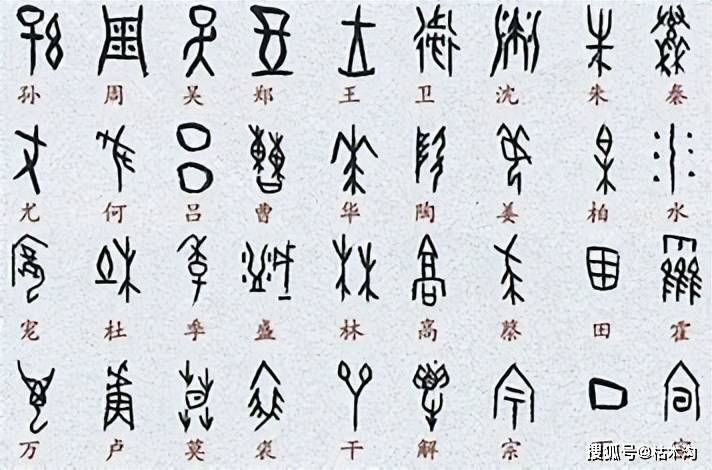 孙 周 吴 郑 王 卫 沈 朱 秦
尤 何 吕 曹 华 陶 姜 柏 水
宠 杜 季 盛 林 高 蔡 田 霍
万 卢 莫 裘 干 解 宗 丁
搜狐号@枯木沟